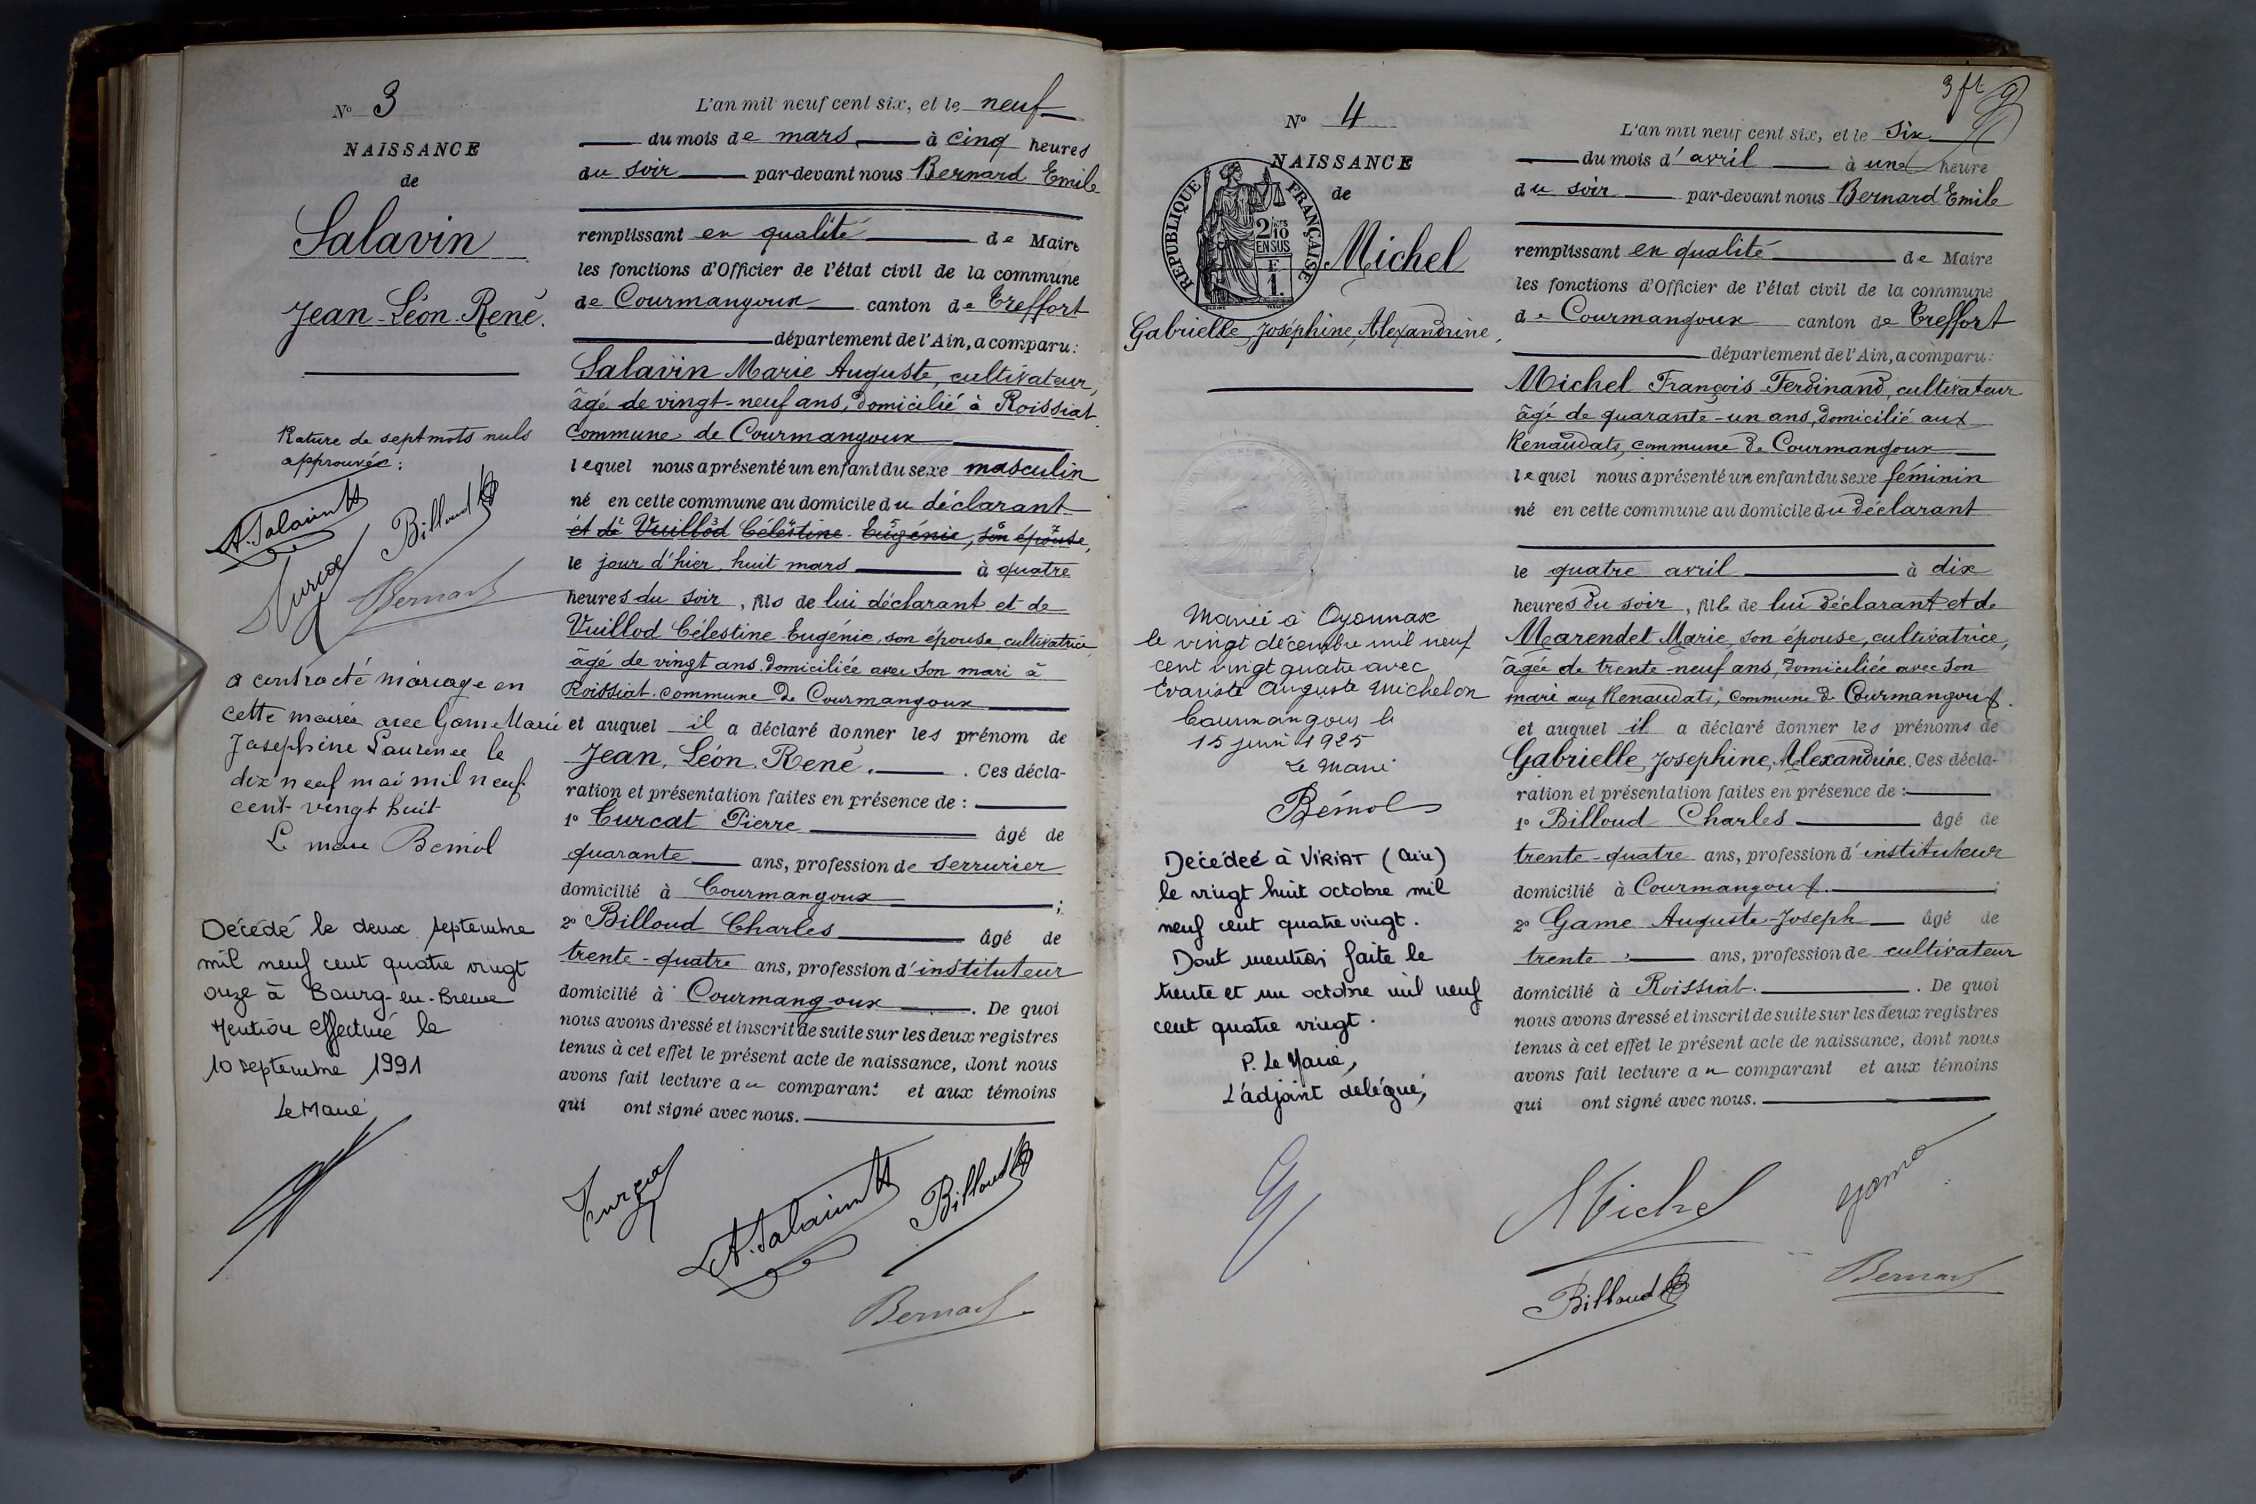 N° 3
NAISSANCE
de
Salavin
Jean-Léon-René.
Rature de sept mots nuls
approuvée :
A. Salavin
Billoud
Curcat
Bernard
a contracté mariage en
cette mairie avec Game Marie
Josephine Laurence le
dix neuf mai mil neuf
cent vingt huit
Le maire Bémol
Décédé le deux septembre
mil neuf cent quatre vingt
onze à Bourg-en-Bresse
Mention effectuée le
10 septembre 1991
Le Maire
L'an mil neuf cent six, et le neuf
du mois de mars à cinq heures
du soir par-devant nous Bernard Emile
remplissant en qualité de Maire
les fonctions d'Officier de l'état civil de la commune
de Courmangoux canton de Treffort
département de l'Ain, a comparu :
Salavin Marie Auguste, cultivateur,
âgé de vingt-neuf ans, domicilié à Roissiat
commune de Courmangoux
lequel nous a présenté un enfant du sexe masculin
né en cette commune au domicile du déclarant
et de Vuillod Célestine-Eugénie, son épouse,
le jour d'hier, huit mars à quatre
heures du soir, fils de lui déclarant et de
Vuillod Célestine-Eugénie, son épouse, cultivatrice
âgé de vingt ans, domiciliée avec son mari à
Roissiat, commune de Courmangoux
et auquel il a déclaré donner les prénom de
Jean, Léon, René. . Ces décla-
ration et présentation faites en présence de :
1° Curcat Pierre âgé de
quarante ans, profession de serrurier
domicilié à Courmangoux ;
2° Billoud Charles âgé de
trente-quatre ans, profession d'instituteur
domicilié à Courmangoux . De quoi
nous avons dressé et inscrit de suite sur les deux registres
tenus à cet effet le présent acte de naissance, dont nous
avons fait lecture au comparant et aux témoins
qui ont signé avec nous.
Curcat
A. Salavin
Billoud
Bernard
N° 4
NAISSANCE
de
RÉPUBLIQUE FRANÇAISE
2/10
EN SUS
F
1.
Michel
Gabrielle, Joséphine, Alexandrine,
Mariée à Oyonnax
le vingt décembre mil neuf
cent vingt quatre avec
Evariste Auguste Michelon
Courmangoux le
15 juin 1925
Le Maire
Bémol
Décédée à VIRIAT (Ain)
le vingt huit octobre mil
neuf cent quatre vingt.
Dont mention faite le
trente et un octobre mil neuf
cent quatre vingt.
P. Le Maire,
L'adjoint délégué,
L'an mil neuf cent six, et le six
du mois d'avril à une heure
du soir par-devant nous Bernard Emile
remplissant en qualité de Maire
les fonctions d'Officier de l'état civil de la commune
de Courmangoux canton de Treffort
département de l'Ain, a comparu :
Michel François Ferdinand, cultivateur
âgé de quarante-un ans, domicilié aux
Renaudats, commune de Courmangoux
lequel nous a présenté un enfant du sexe féminin
né en cette commune au domicile du déclarant
le quatre avril à dix
heures du soir, fille de lui déclarant et de
Marendet Marie, son épouse, cultivatrice,
âgée de trente-neuf ans, domiciliée avec son
mari aux Renaudats, commune de Courmangoux.
et auquel il a déclaré donner les prénoms de
Gabrielle, Josephine, Alexandrine. Ces décla-
ration et présentation faites en présence de :
1° Billoud Charles âgé de
trente-quatre ans, profession d'instituteur
domicilié à Courmangoux. ;
2° Game Auguste-Joseph âgé de
trente ans, profession de cultivateur
domicilié à Roissiat. . De quoi
nous avons dressé et inscrit de suite sur les deux registres
tenus à cet effet le présent acte de naissance, dont nous
avons fait lecture au comparant et aux témoins
qui ont signé avec nous.
Michel
Game
Billoud
Bernard